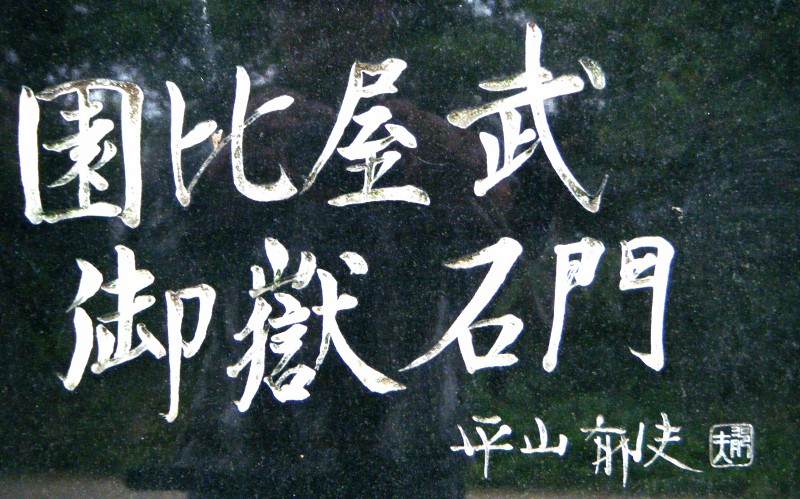 園比屋武
御嶽石門
平山郁夫